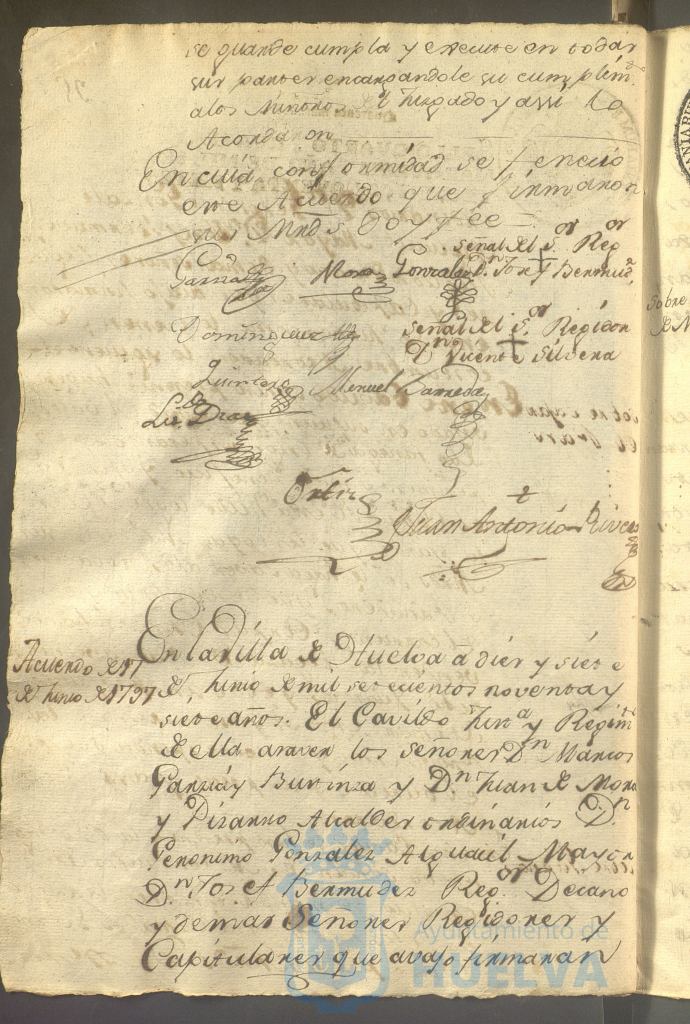 se guarde cumpla y execute en todas
sus partes encargandole su cumplim.to
a los Señores de Juzgado y assi lo
Acordaron
En cuia conformidad se fenecio
este Acuerdo que firmaron
sus Mrds Doy fee =
señal del S.or Reg.or
Garzia Mora Gonzalez D.n Josef Bermud.z
Dominguez señal del S.or Regidor
D.n Vicente Silvera
Quintero Manuel Barreda
Lic.do Diaz
Ortiz
Juan Antonio Rivera
Acuerdo de 17
de Junio de 1797
En la Villa de Huelva a diez y siete
de Junio de mil setecientos noventa y
siete años. El Cavildo Just.a y Regim.to
de ella asaver los señores D.n Marcos
Garzia y Burinza y D.n Juan de Mora
y Pizarro Alcaldes ordinarios D.n
Geronimo Gonzalez Alguacil Mayor
D.n Josef Bermudez Reg.or Decano
y demas Señores Regidores y
Capitulares que avajo firmaran
Ayuntamiento de
HUELVA